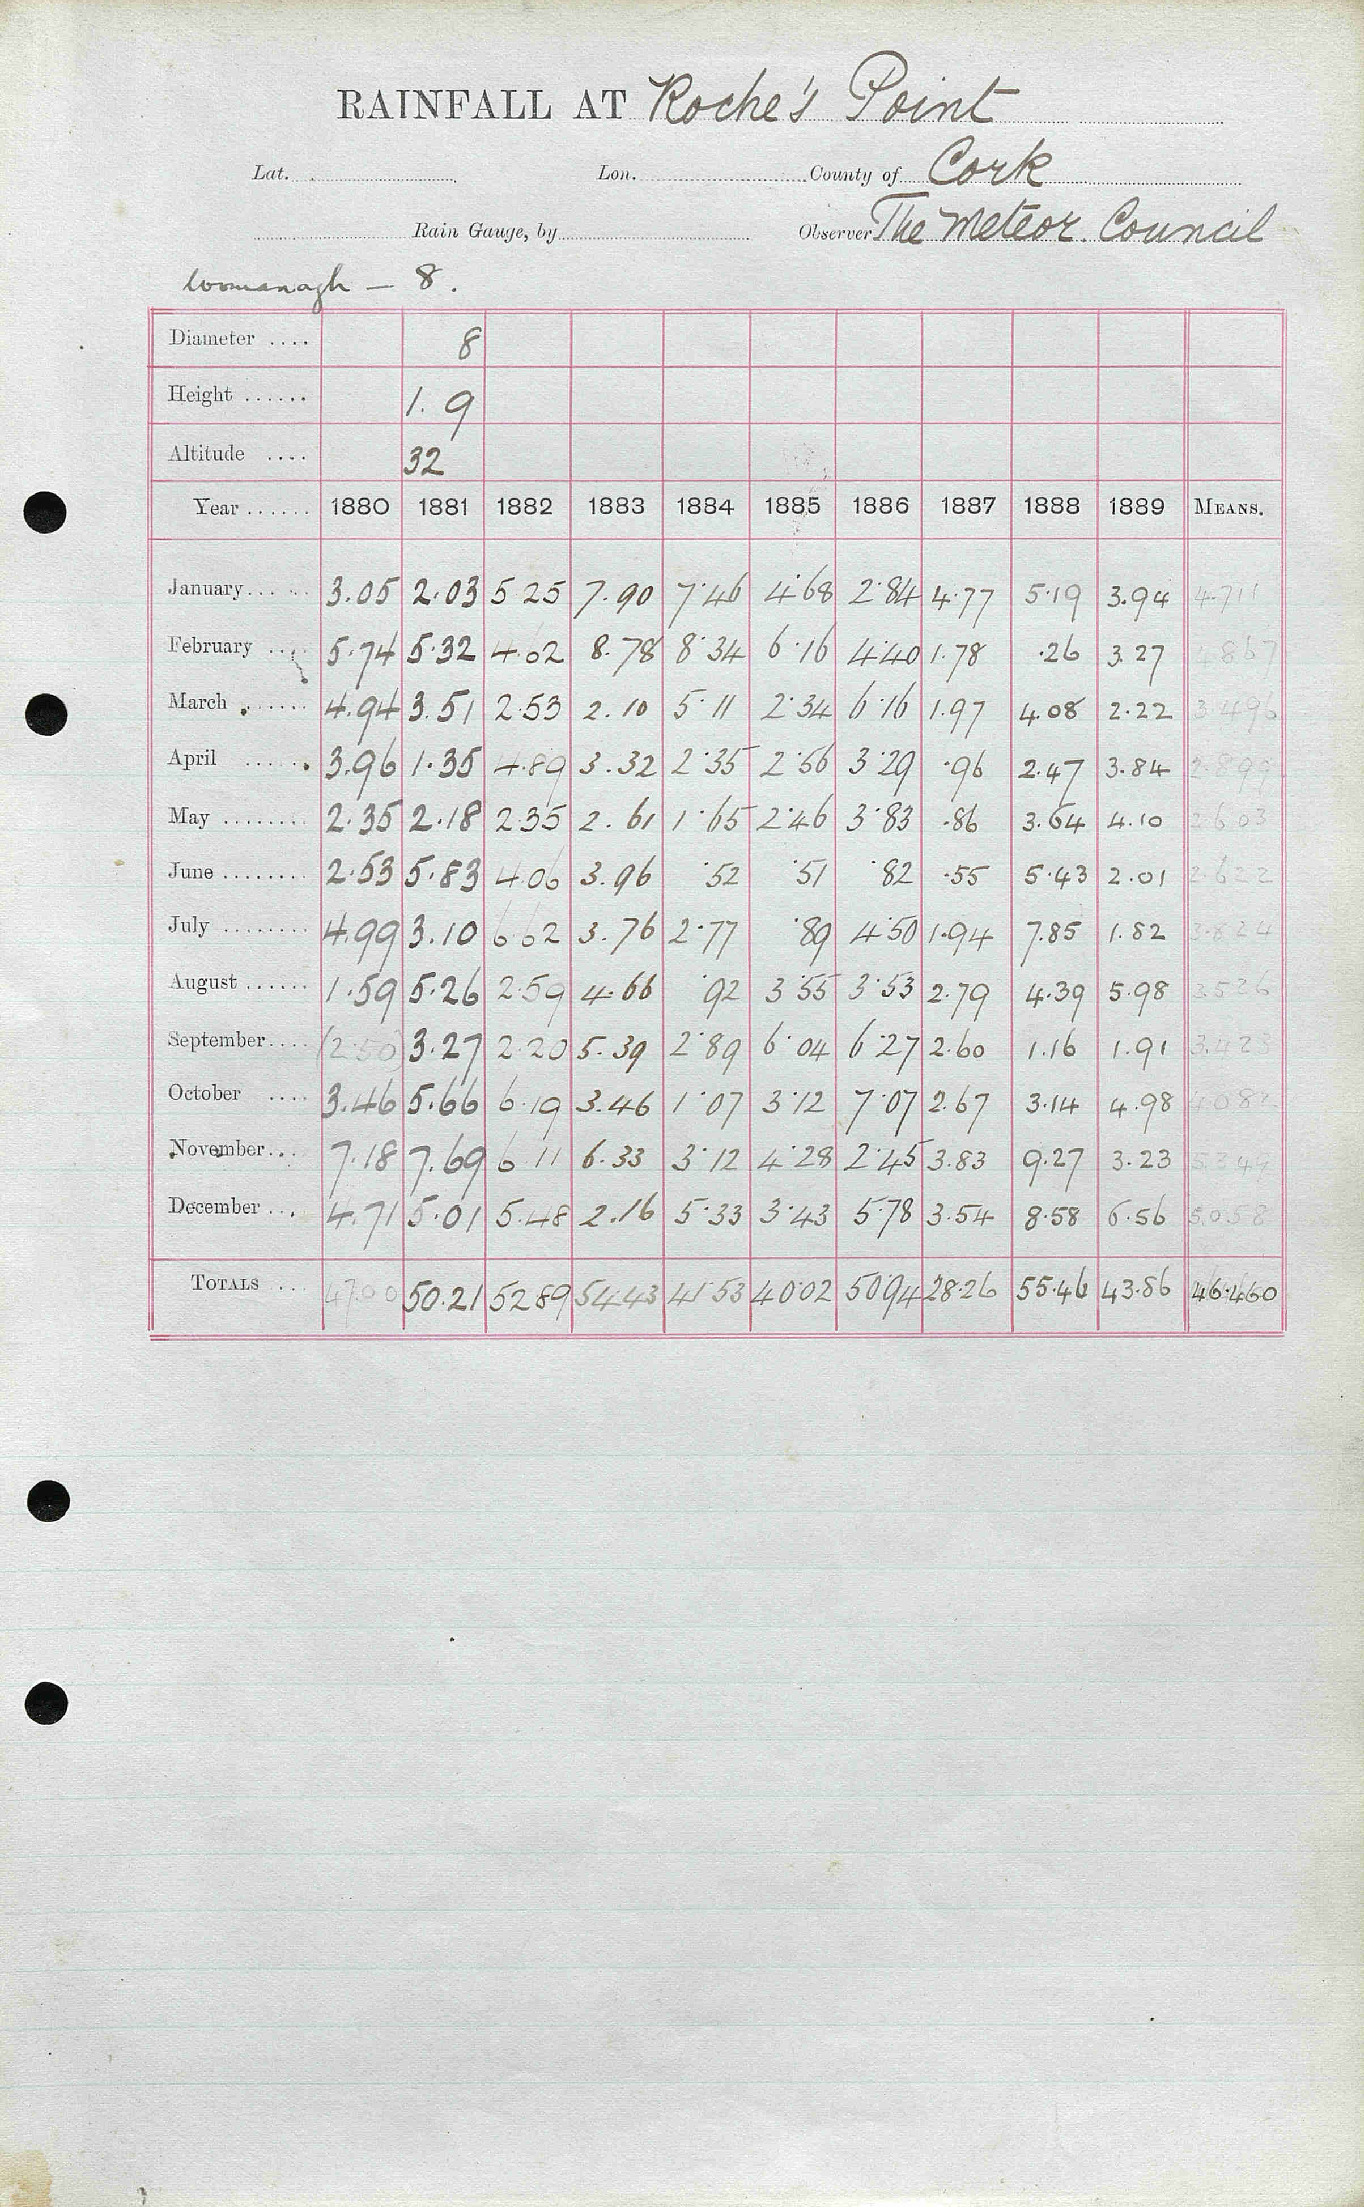 RAINFALL AT Roche's Point
Lat. Lon. County of Cork
Rain Gauge, by Observer The Meteor. Council
— 8.
Diameter .... 8
Height ...... 1. 9
Altitude .... 32
Year ...... 1880 1881 1882 1883 1884 1885 1886 1887 1888 1889 MEANS.
January..... 3.05 2.03 5.25 7.90 7.46 4.68 2.84 4.77 5.19 3.94 4.711
February .... 5.74 5.32 4.62 8.78 8.34 6.16 4.40 1.78 .26 3.27 4.867
March ....... 4.94 3.51 2.53 2.10 5.11 2.34 6.16 1.97 4.08 2.22 3.496
April ...... 3.96 1.35 4.89 3.32 2.35 2.56 3.29 .96 2.47 3.84 2.899
May ........ 2.35 2.18 2.35 2.61 1.65 2.46 3.83 .86 3.64 4.10 2.603
June ........ 2.53 5.83 4.06 3.96 .52 .51 .82 .55 5.43 2.01 2.622
July ........ 4.99 3.10 6.62 3.76 2.77 .89 4.50 1.94 7.85 1.82 3.824
August ...... 1.59 5.26 2.59 4.66 .92 3.55 3.53 2.79 4.39 5.98 3.526
September.... (2.50) 3.27 2.20 5.39 2.89 6.04 6.27 2.60 1.16 1.91 3.423
October .... 3.46 5.66 6.19 3.46 1.07 3.12 7.07 2.67 3.14 4.98 4.082
November... 7.18 7.69 6.11 6.33 3.12 4.28 2.45 3.83 9.27 3.23 5.349
December ... 4.71 5.01 5.48 2.16 5.33 3.43 5.78 3.54 8.58 6.56 5.058
TOTALS ... 47.00 50.21 52.89 54.43 41.53 40.02 50.94 28.26 55.46 43.86 46.460